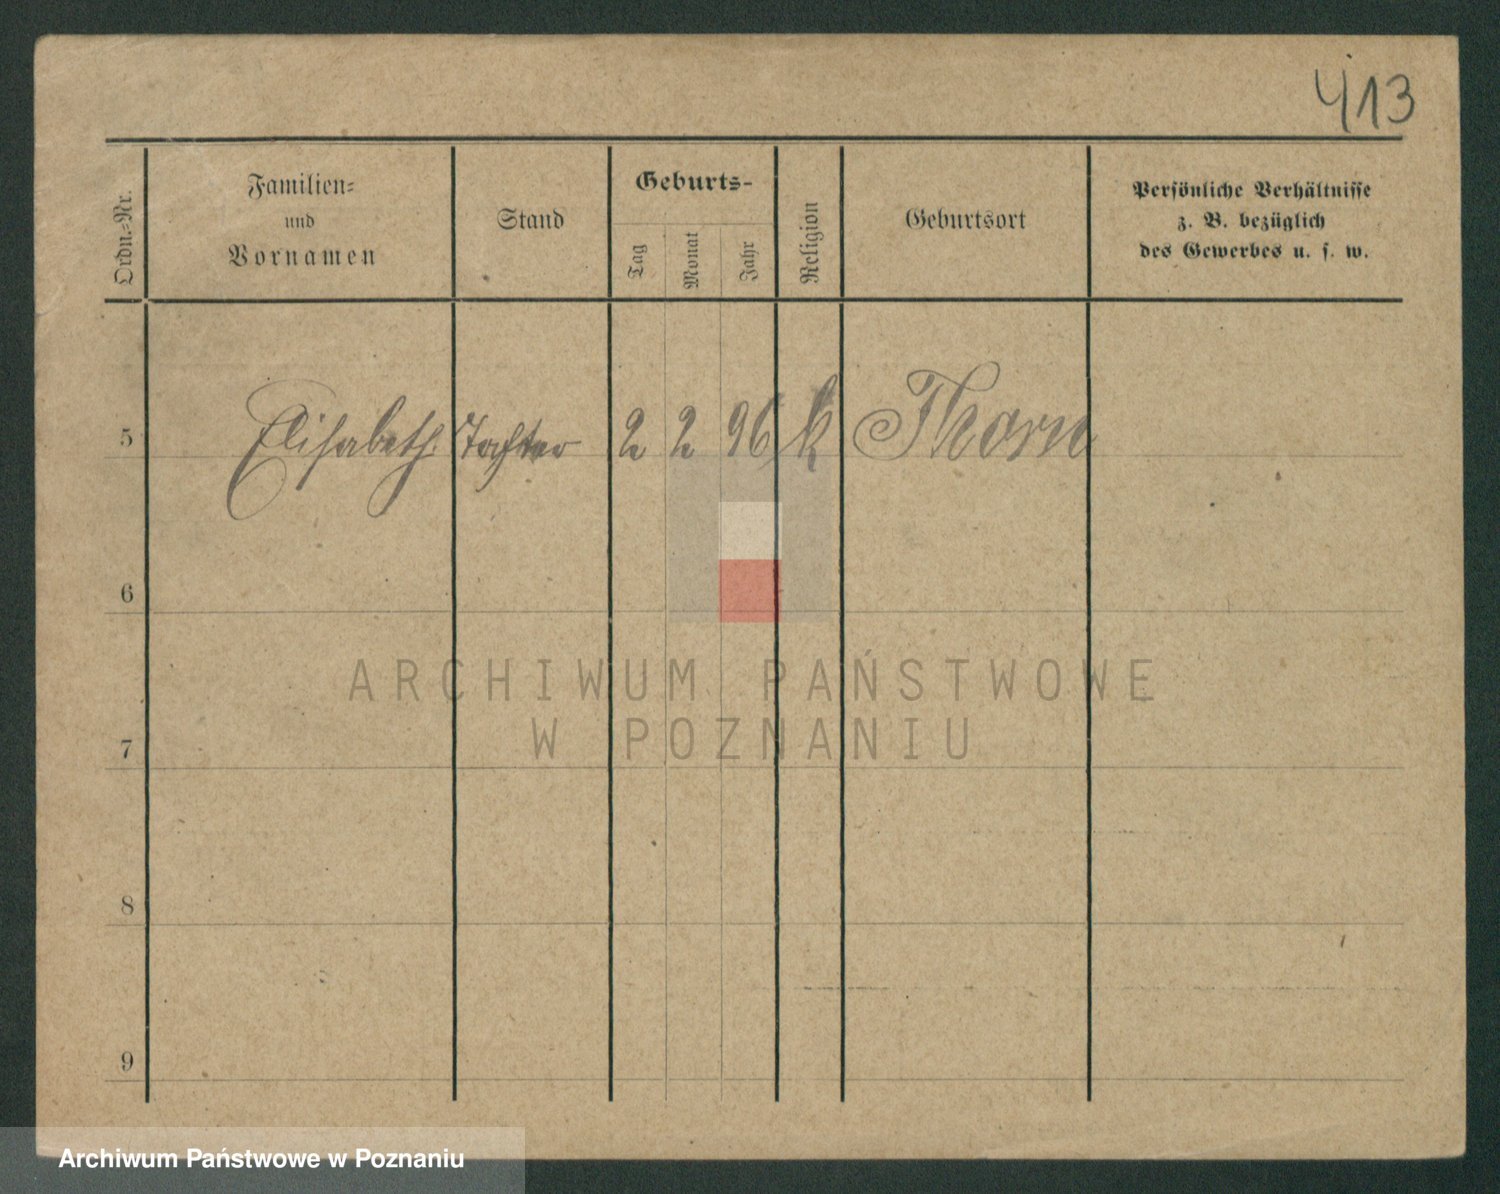 413
Ordn.-Nr.
Familien-
und
Vornamen
Stand
Geburts-
Tag
Monat
Jahr
Religion
Geburtsort
Persönliche Verhältnisse
z. B. bezüglich
des Gewerbes u. s. w.
5 Elisabeth Tochter 2 2 96 k Thorn
6
ARCHIWUM PAŃSTWOWE
W POZNANIU
7
8
9
Archiwum Państwowe w Poznaniu